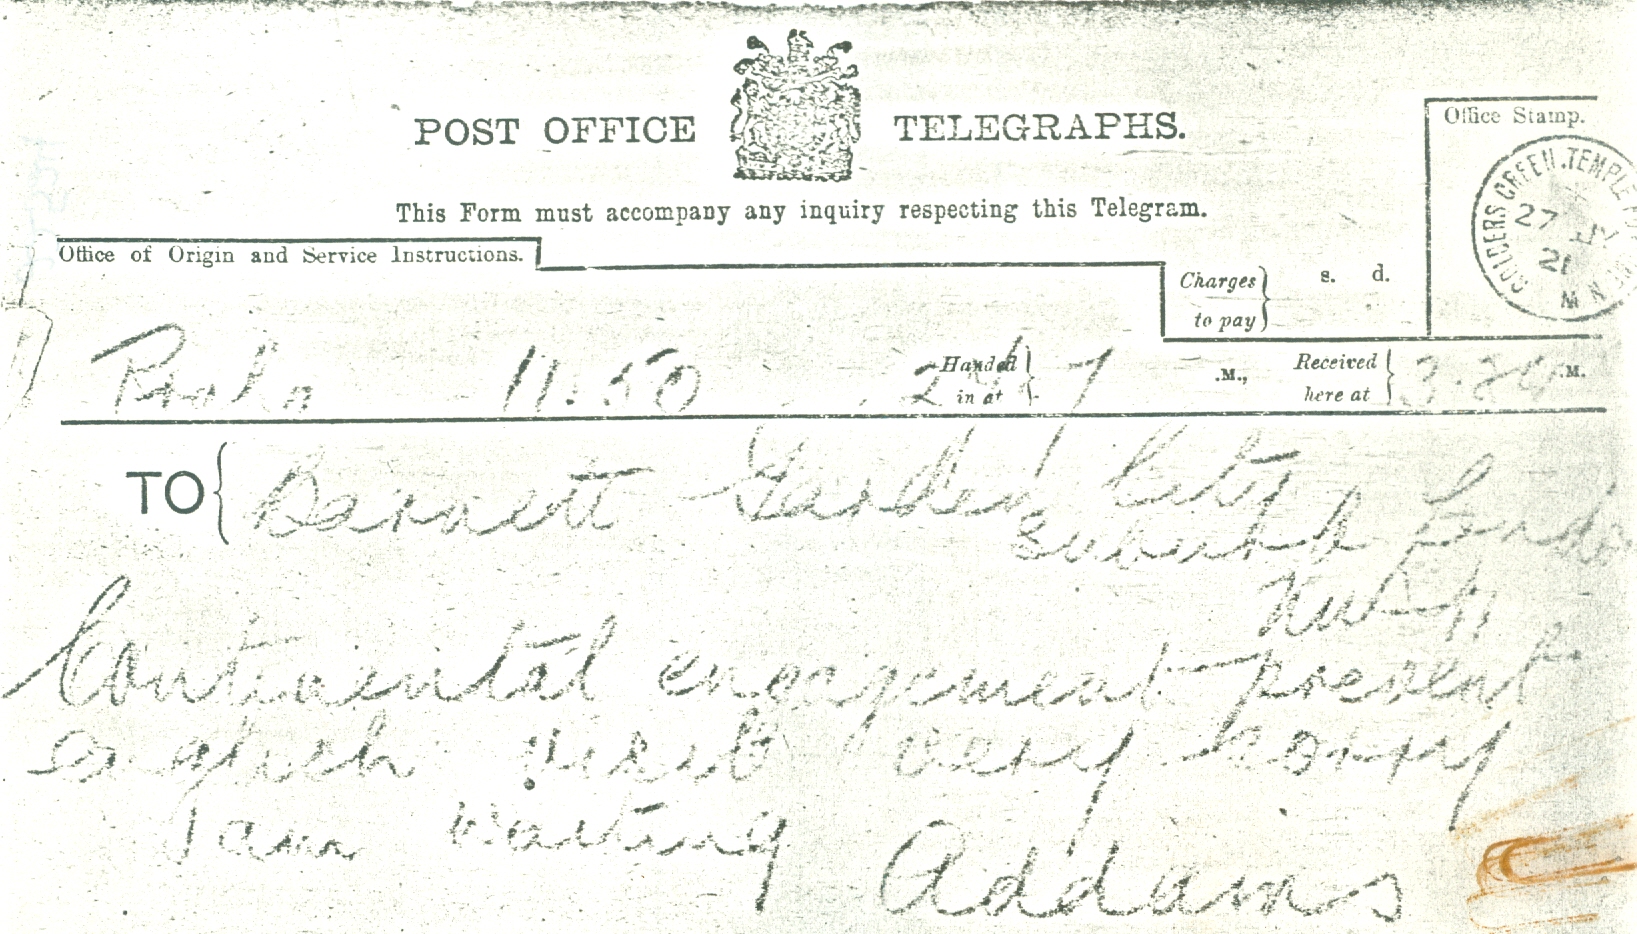 POST OFFICE TELEGRAPHS.
This Form must accompany any inquiry respecting this Telegram.
Office Stamp.
GOLDERS GREEN. TEMPLE
27 JY
21
N.W.
Office of Origin and Service Instructions.
Charges to pay } s. d.
11.50
Handed in at } .M.,
Received here at } 3.24 .M.
TO { Barnett Garden City
Suburb London
Continental engagement prevent
english visit very sorry
I am writing Addams